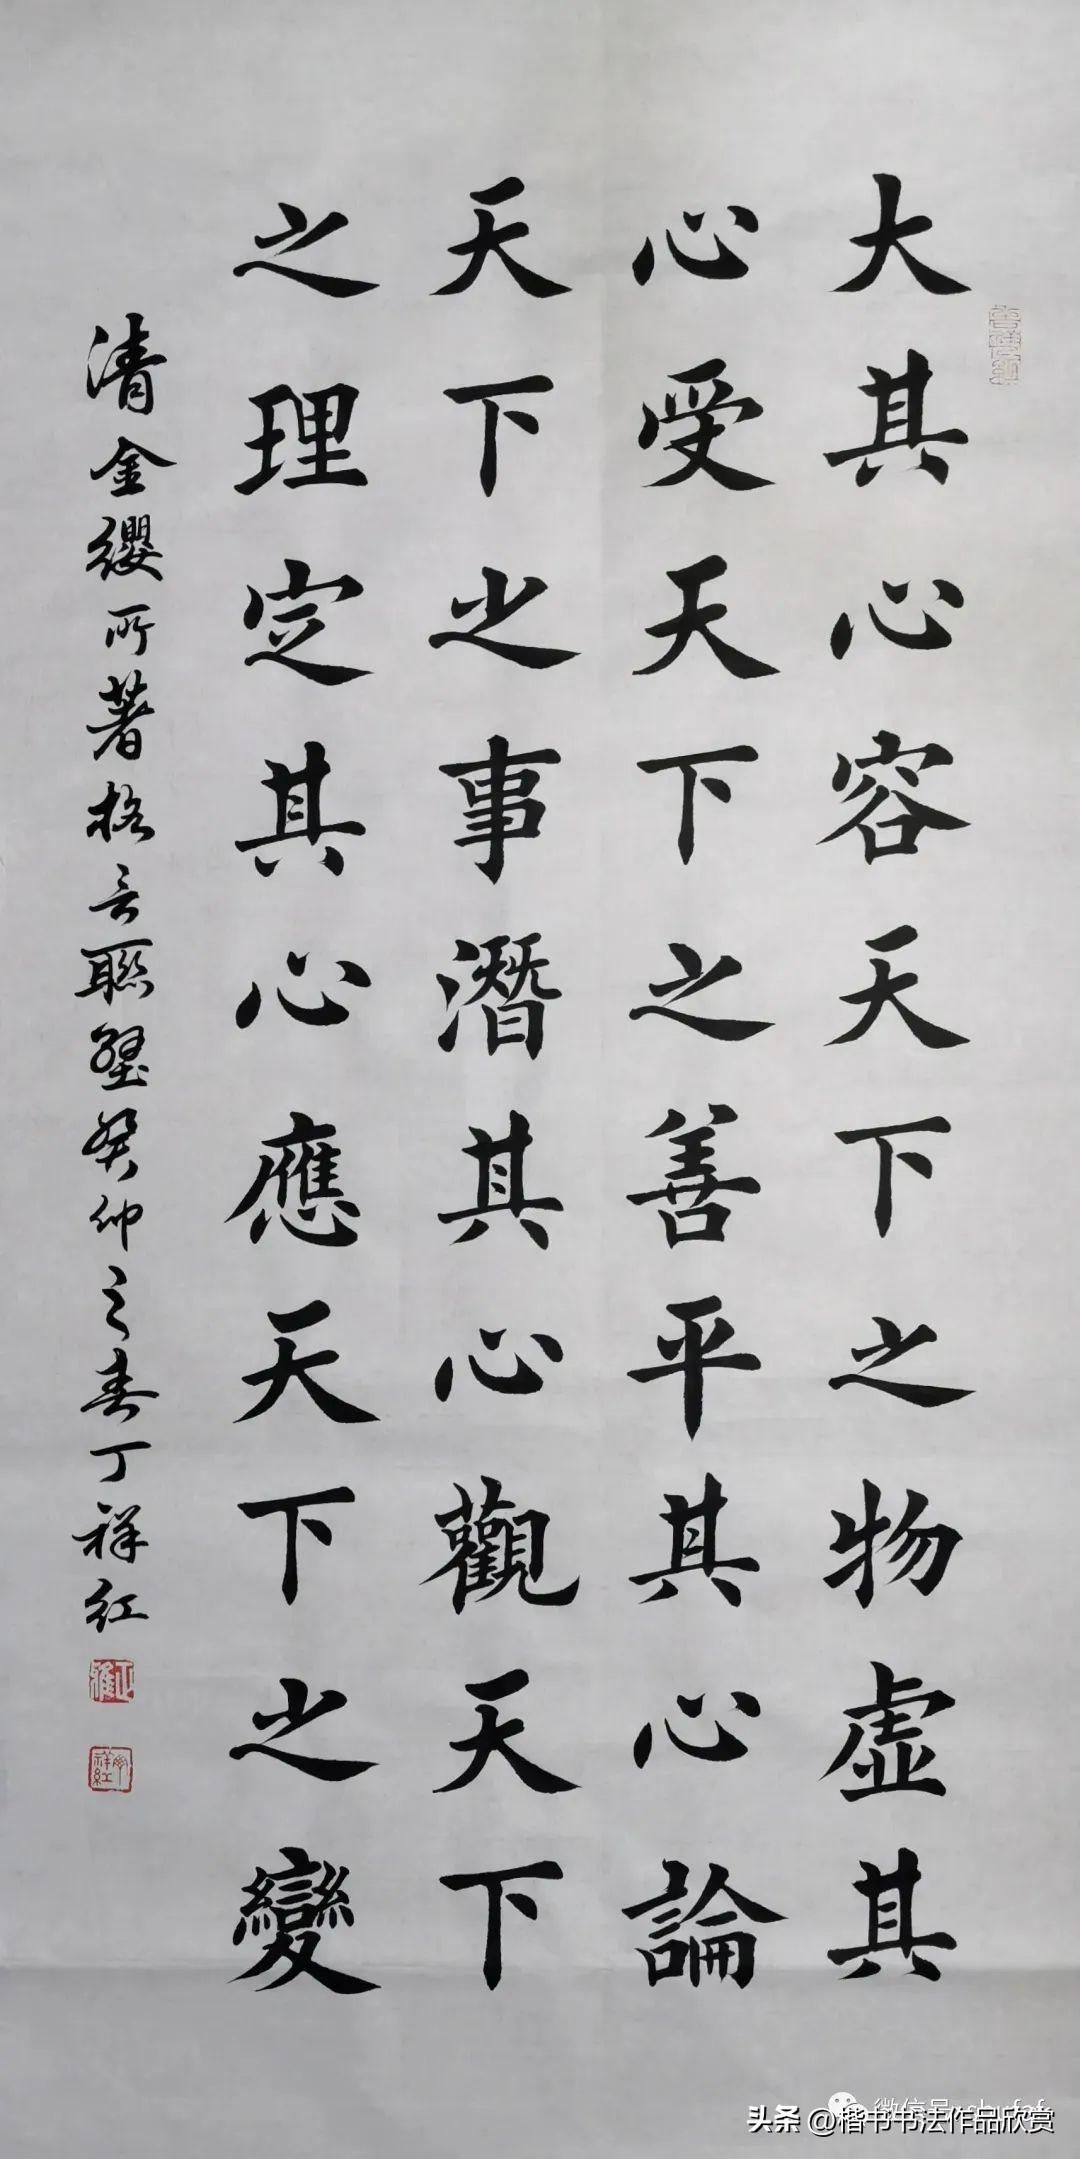 大其心容天下之物虛其
心受天下之善平其心論
天下之事潛其心觀天下
之理定其心應天下之變
清金纓所著格言聯璧癸卯之春丁祥红
头条 @楷书书法作品欣赏